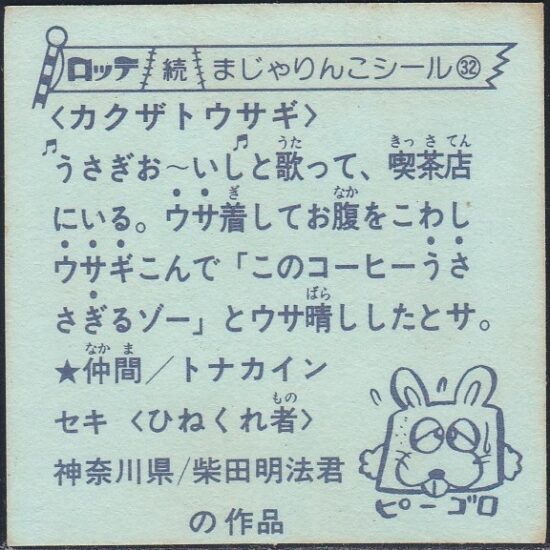 ロッテ 続 まじゃりんこシール㉜
〈カクザトウサギ〉
♬うさぎお〜いし♬と歌って、喫茶店
にいる。ウサ着してお腹をこわし
ウサギこんで「このコーヒーうさ
さぎるゾー」とウサ晴ししたとサ。
★仲間／トナカイン
セキ〈ひねくれ者〉
神奈川県/柴田明法君
の作品
ピーゴロ